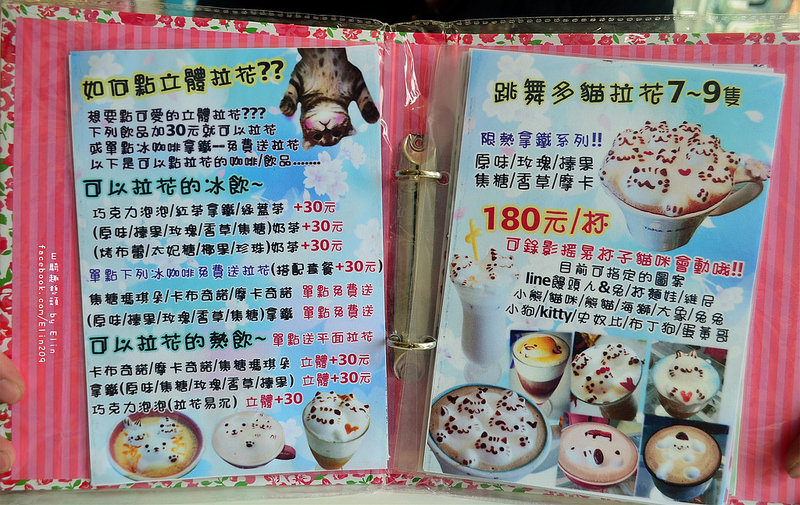 如何點立體拉花??
想要點可愛的立體拉花???
下列飲品加30元就可以拉花
或單點冰咖啡拿鐵--免費送拉花
以下是可以點拉花的咖啡/飲品.......
可以拉花的冰飲~
巧克力泡泡/紅茶拿鐵/綠蓋茶 +30元
(原味/榛果/玫瑰/香草/焦糖)奶茶+30元
(烤布蕾/太妃糖/椰果/珍珠)奶茶+30元
單點下列冰咖啡免費送拉花(搭配套餐+30元)
焦糖瑪琪朵/卡布奇諾/摩卡奇諾 單點免費送
(原味/榛果/玫瑰/香草/焦糖)拿鐵 單點免費送
可以拉花的熱飲~ 單點送平面拉花
卡布奇諾/摩卡奇諾/焦糖瑪琪朵 立體+30元
拿鐵(原味/焦糖/玫瑰/香草/榛果) 立體+30元
巧克力泡泡(拉花易沉) 立體+30
跳舞多貓拉花7~9隻
限熱拿鐵系列!!
原味/玫瑰/榛果
焦糖/香草/摩卡
180元/杯
可錄影搖晃杯子貓咪會動哦!!
目前可指定的圖案
line饅頭人&兔/杯麵娃/維尼
小熊/貓咪/熊貓/海獅/大象/兔兔
小狗/kitty/史奴比/布丁狗/蛋黃哥
by Elin
facebook.com/Elin209